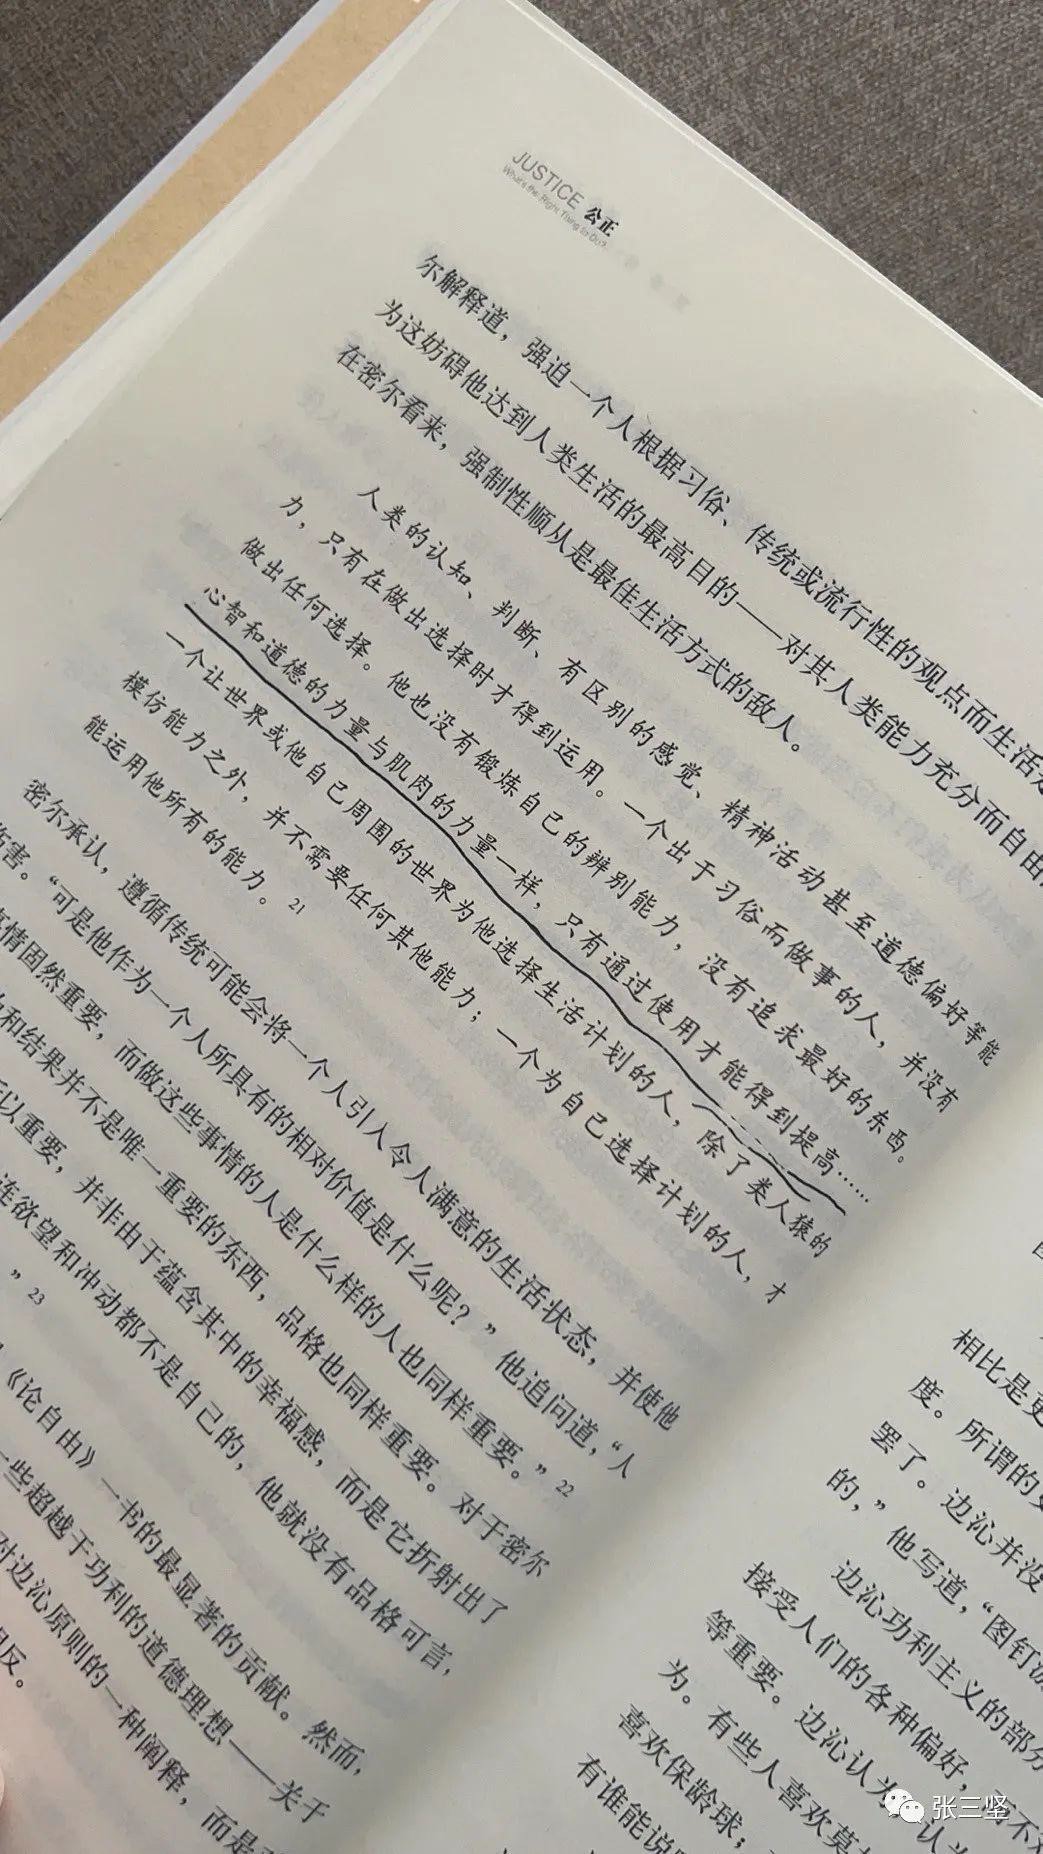 JUSTICE 公正
What's the Right Thing to Do?
尔解释道，强迫一个人根据习俗、传统或流行性的观点而生活
为这妨碍他达到人类生活的最高目的——对其人类能力充分而自由
在密尔看来，强制性顺从是最佳生活方式的敌人。
人类的认知、判断、有区别的感觉、精神活动甚至道德偏好等能
力，只有在做出选择时才得到运用。一个出于习俗而做事的人，并没有
做出任何选择。他也没有锻炼自己的辨别能力，没有追求最好的东西。
心智和道德的力量与肌肉的力量一样，只有通过使用才能得到提高……
一个让世界或他自己周围的世界为他选择生活计划的人，除了类人猿的
模仿能力之外，并不需要任何其他能力；一个为自己选择计划的人，才
能运用他所有的能力。21
密尔承认，遵循传统可能会将一个人引入令人满意的生活状态，并使他
伤害。“可是他作为一个人所具有的相对价值是什么呢？”他追问道，“人
事情固然重要，而做这些事情的人是什么样的人也同样重要。”22
和结果并不是唯一重要的东西，品格也同样重要。对于密尔
所以重要，并非由于蕴含其中的幸福感，而是它折射出了
连欲望和冲动都不是自己的，他就没有品格可言，
”23
《论自由》一书的最显著的贡献。然而，
一些超越于功利的道德理想——关于
对边沁原则的一种阐释，而是
相反。
相比是更
度。所谓的
罢了。边沁并没
的，”他写道，“图钉游
边沁功利主义的部分
接受人们的各种偏好，而不
等重要。边沁认为，认为
为。有些人喜欢莫
喜欢保龄球；
有谁能说
张三坚